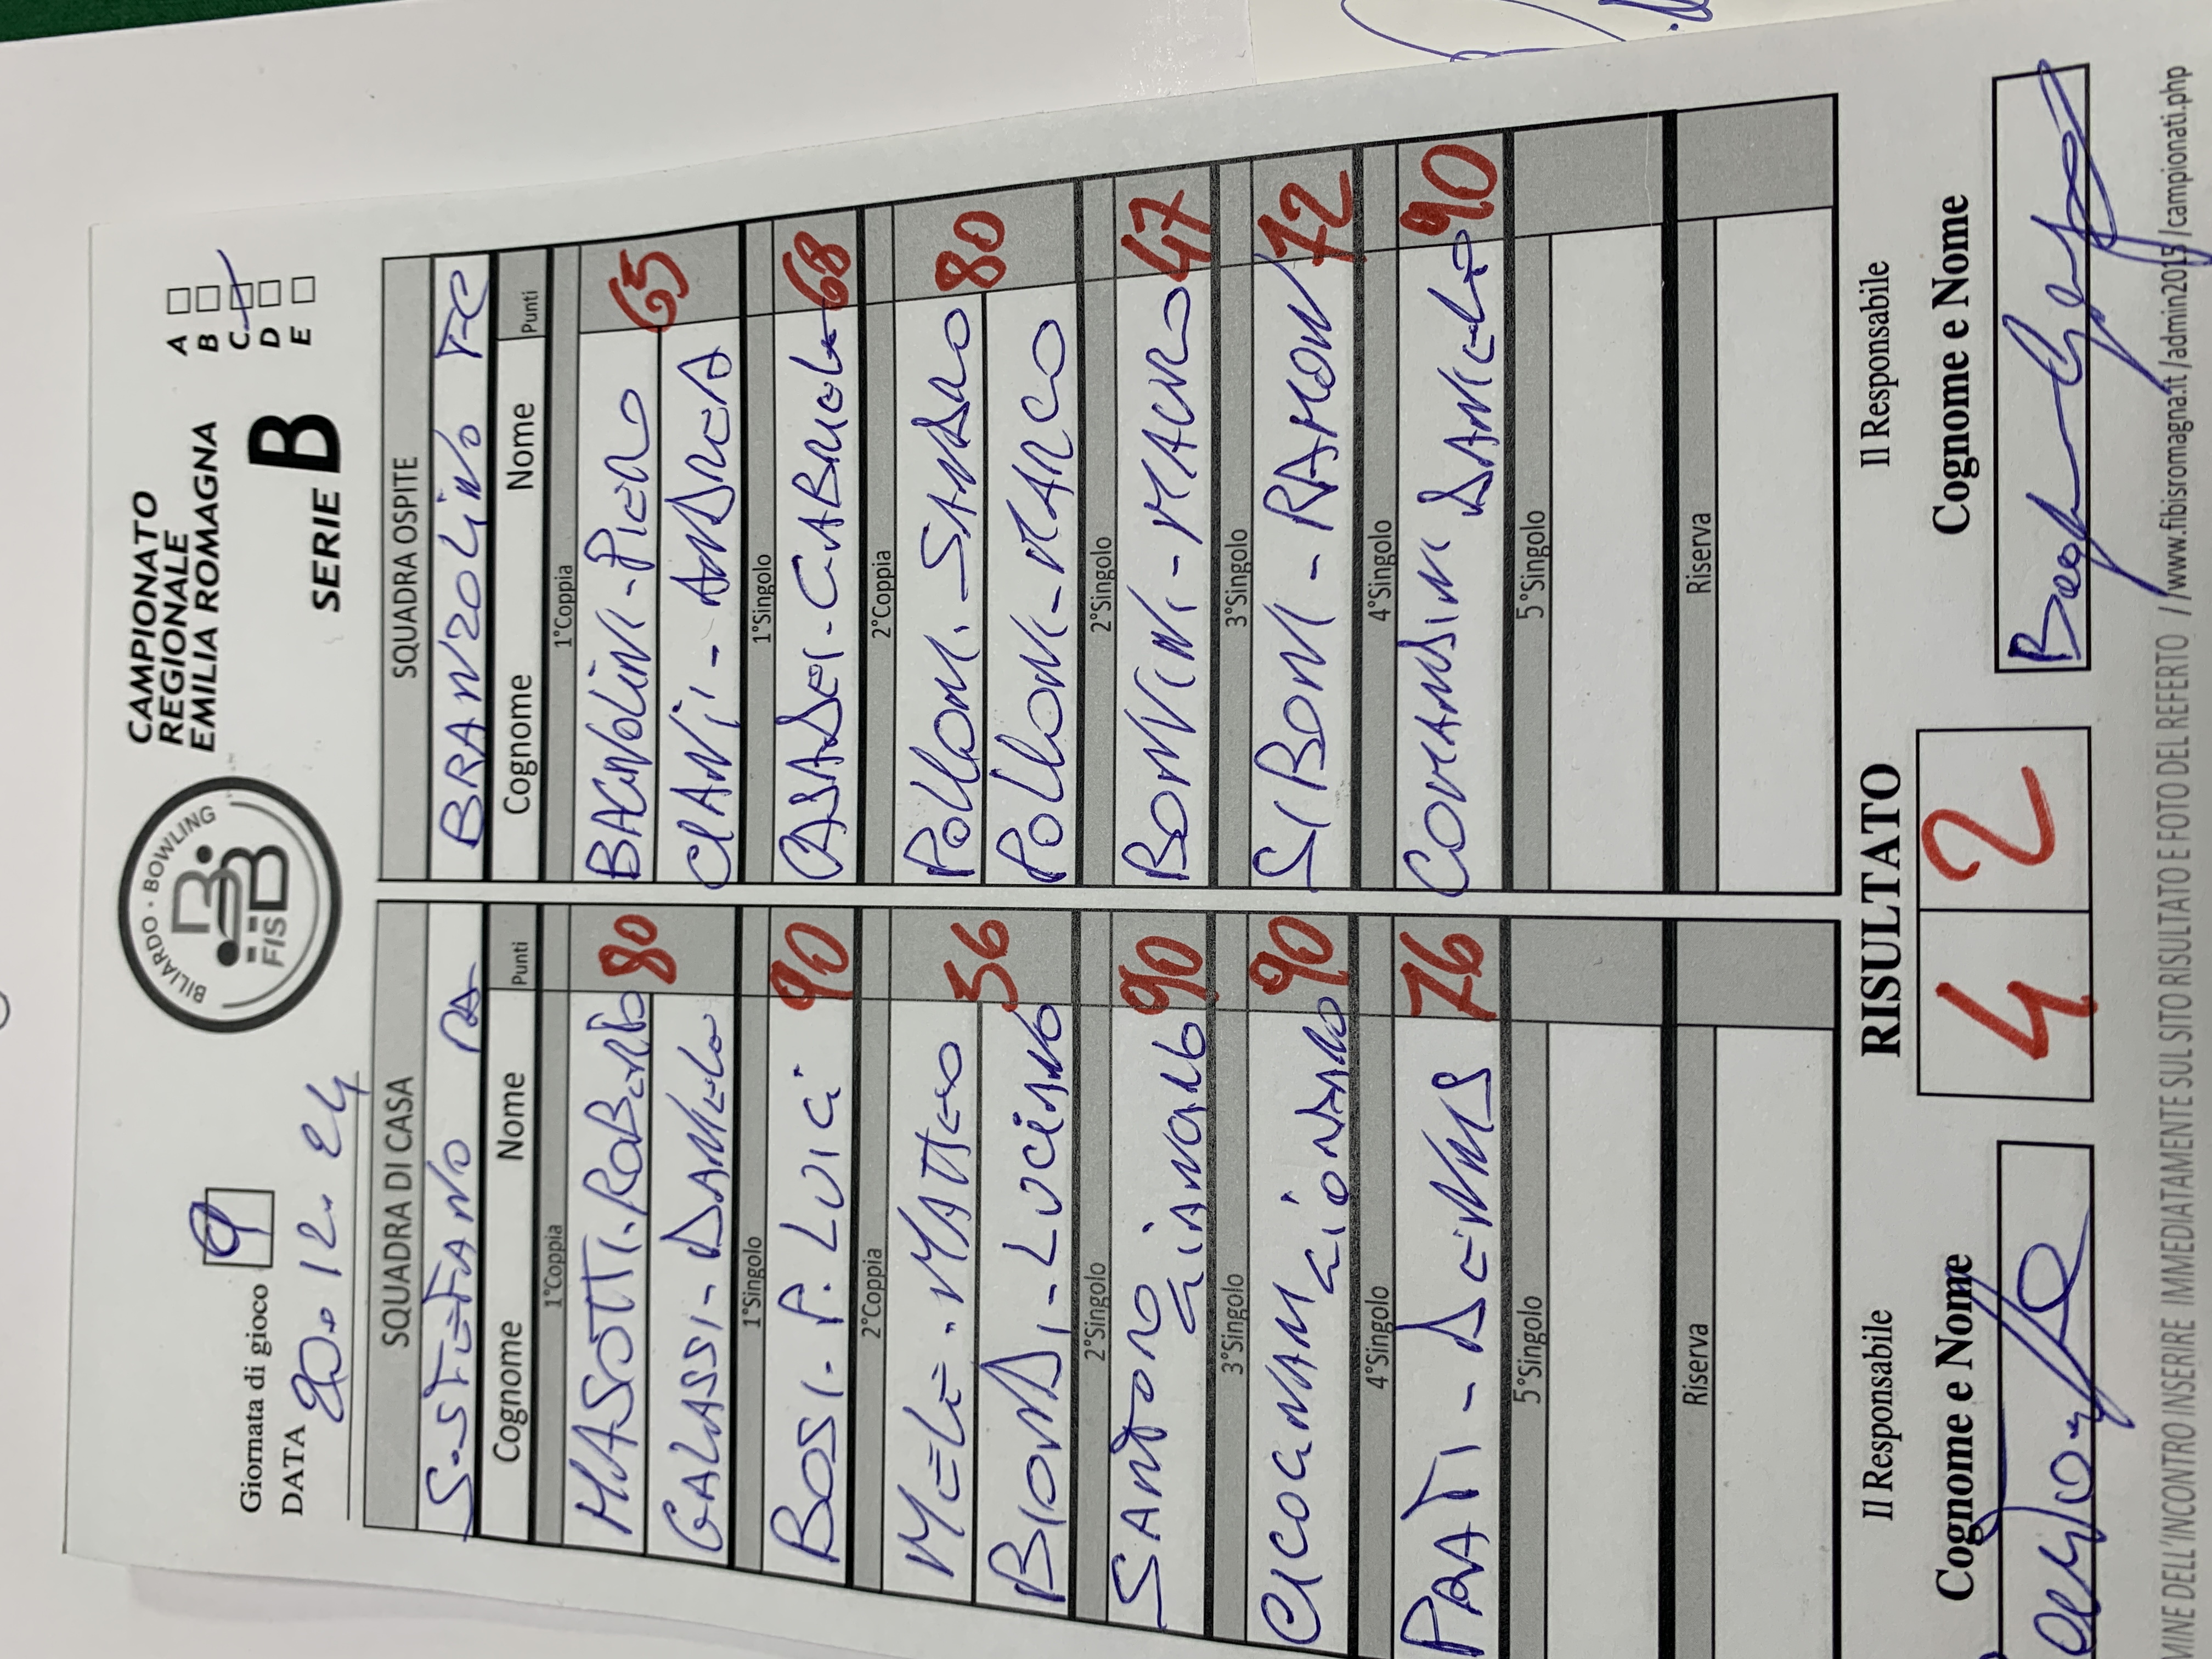 Giornata di gioco 9
DATA 20.12.24
BILIARDO · BOWLING
FISBB
CAMPIONATO
REGIONALE
EMILIA ROMAGNA
SERIE B
A
B
C
D
E
SQUADRA DI CASA
S. STEFANO RA
Cognome Nome Punti
1°Coppia
MASOTTI. ROBERTO 80
GALASSI - DANIELO
1°Singolo
BOSI. P. LUIGI 90
2°Coppia
MELE. MATTEO 56
BIONDI. LUCIANO
2°Singolo
SANTORO GIANCARLO 90
3°Singolo
CICOGNANI GIONATA 90
4°Singolo
PRATI - DENNIS 76
5°Singolo
Riserva
SQUADRA OSPITE
BRANZOLINO FC
Cognome Nome Punti
1°Coppia
BAGNOLINI - PIERO 65
CIANI - ANDREA
1°Singolo
CASADEI - GABRIELE 68
2°Coppia
POLLONI. SANDRO 80
POLLONI - MARCO
2°Singolo
BONVINI - MAURO 47
3°Singolo
SIBONI - RAMON 72
4°Singolo
COMANDINI DANIELE 90
5°Singolo
Riserva
RISULTATO
4 2
Il Responsabile
Cognome e Nome
Il Responsabile
Cognome e Nome
MINE DELL'INCONTRO INSERIRE IMMEDIATAMENTE SUL SITO RISULTATO E FOTO DEL REFERTO //www.fibisromagna.it/admin2015/campionati.php